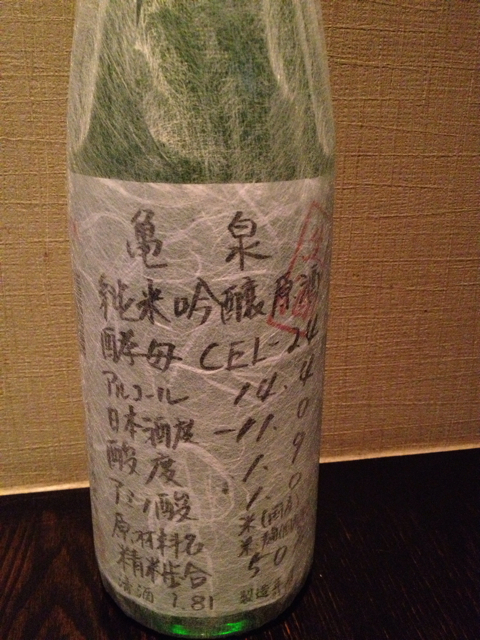 亀泉
純米吟醸原酒
酵母 CEL-24
アルコール 14.4
日本酒度 -11.0
酸度 1.9
アミノ酸 1.0
原材料名 米(国産)
米麹
精米歩合 50
清酒 1.8l 製造年月